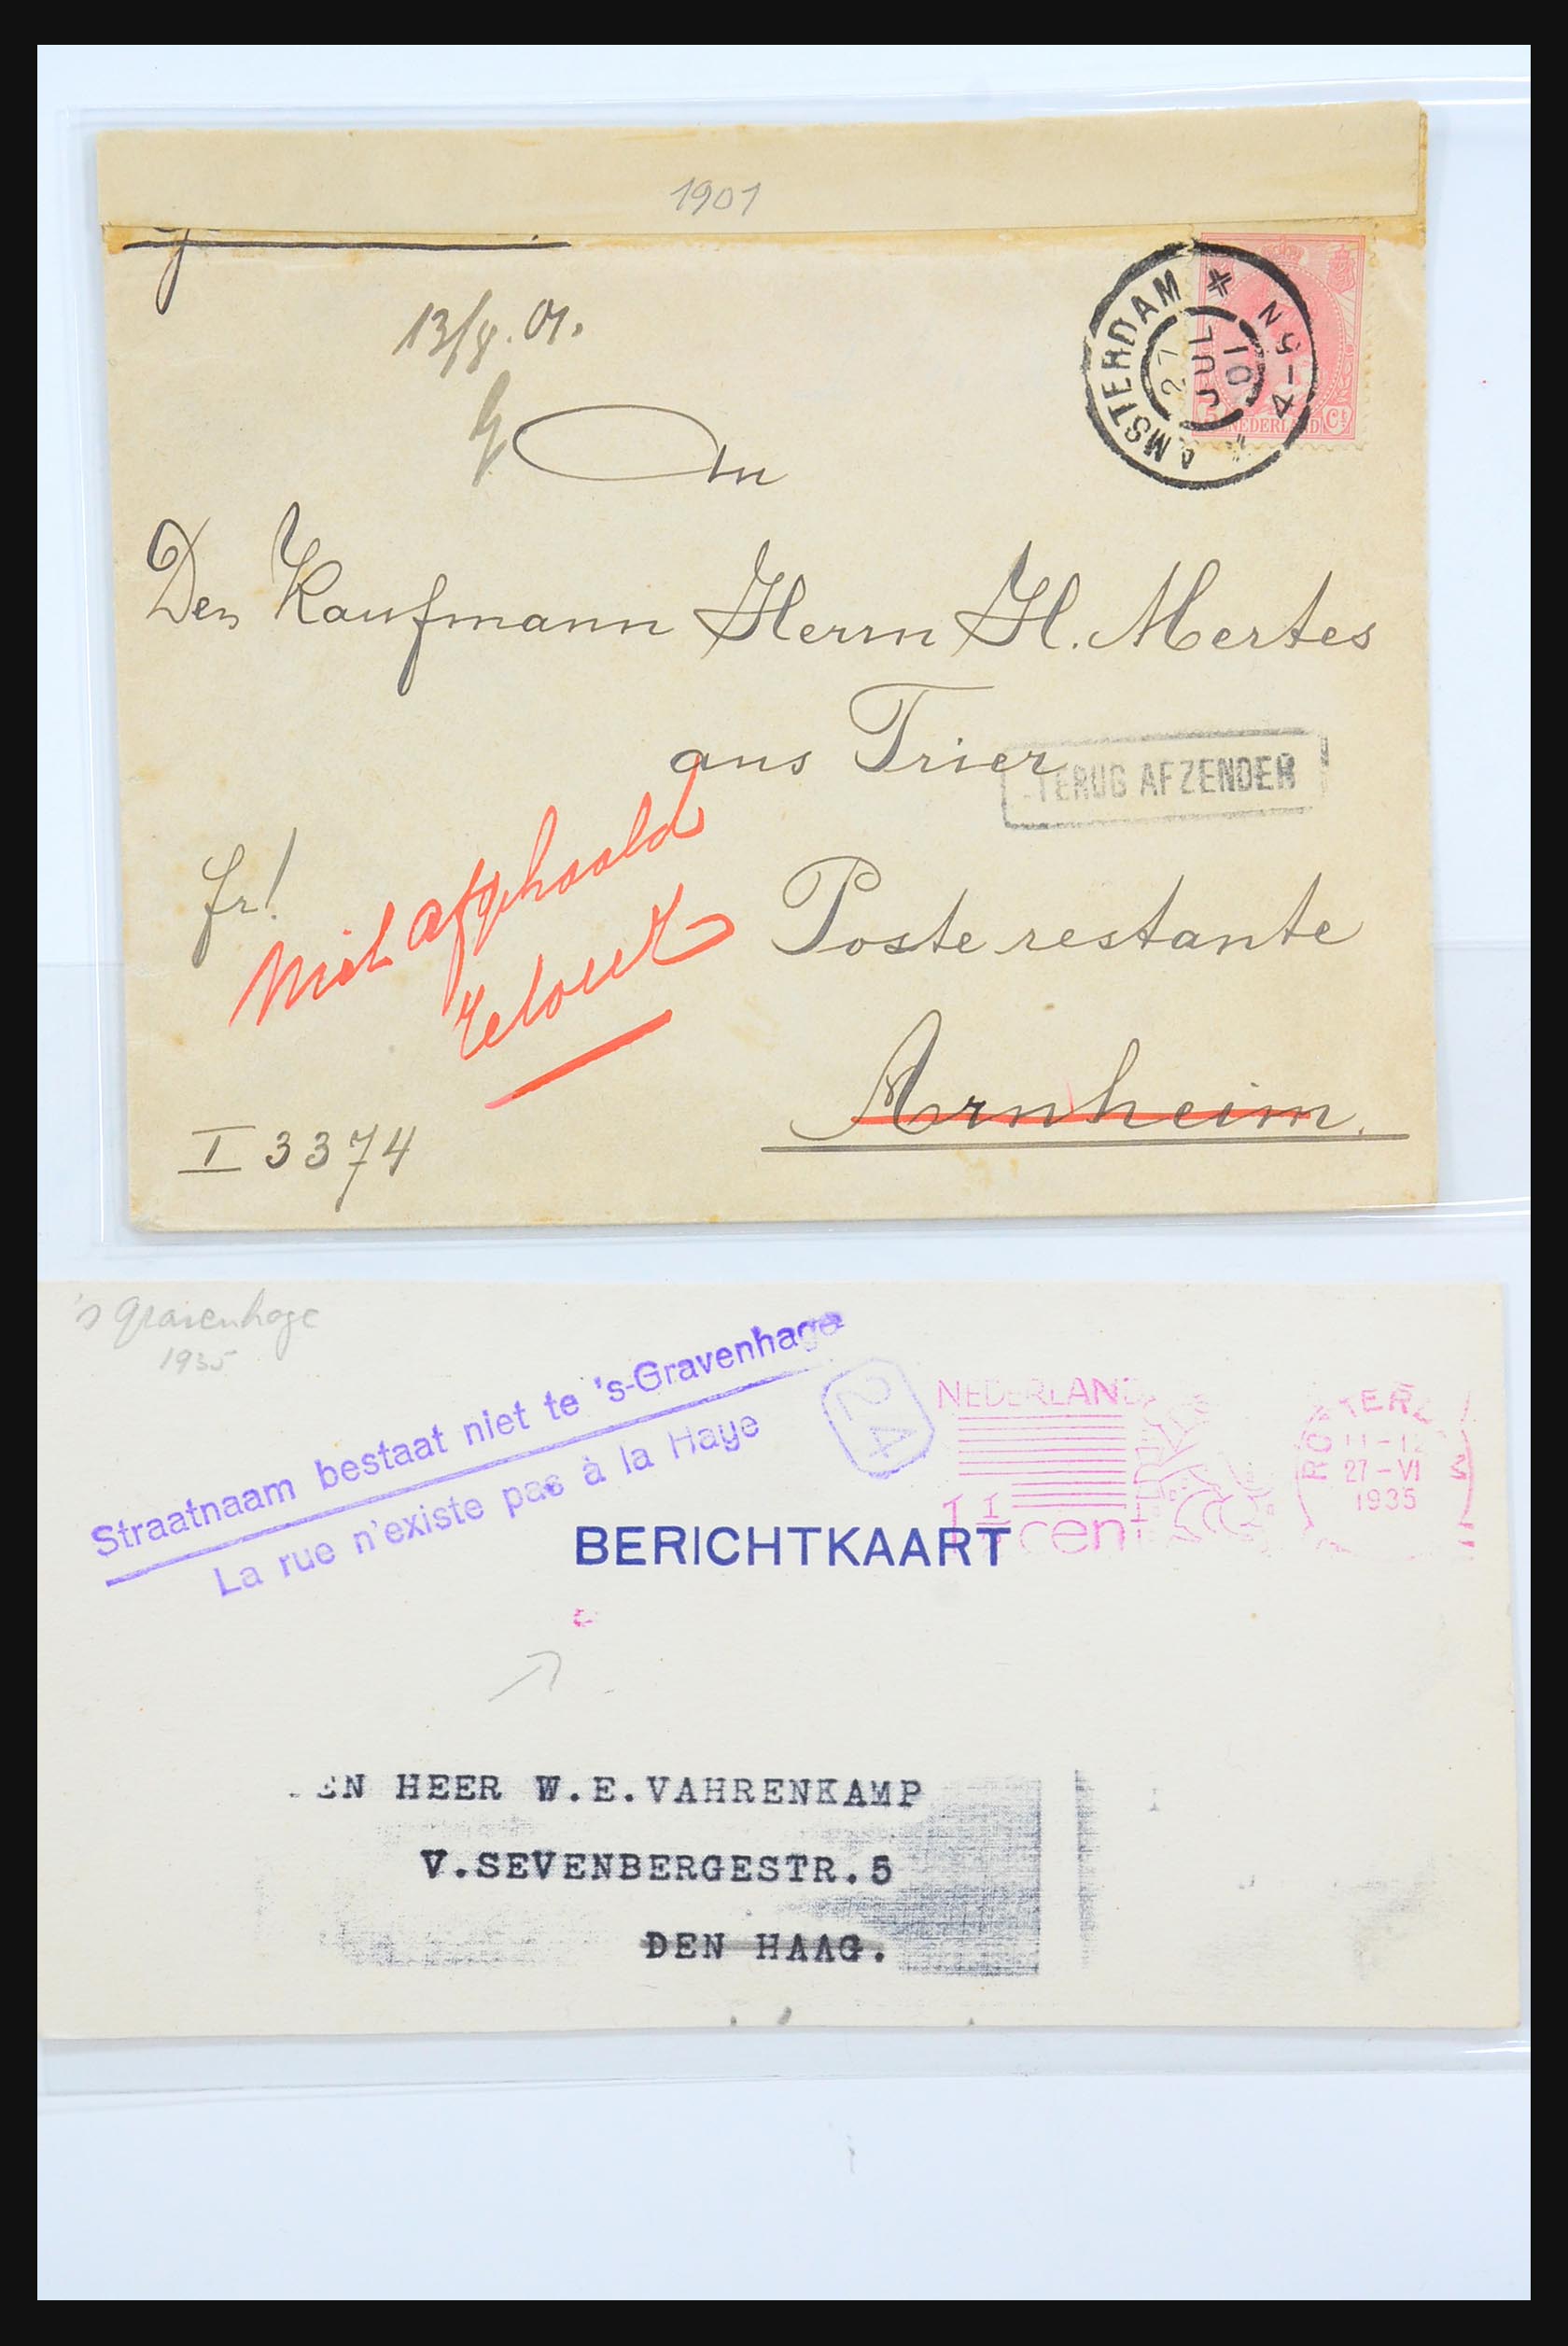 1901
13/8.01.
AMSTERDAM
4-5 N
JUL
01
5 NEDERLAND Ct
An
Den Kaufmann Herrn H. Mertes
aus Trier
TERUG AFZENDER
fr!
Niet afgehaald
retour
Poste restante
Arnheim.
I 3374
's Gravenhage
1935
Straatnaam bestaat niet te 's-Gravenhage
La rue n'existe pas à la Haye
24
NEDERLAND
1½ cent
11-12
27-VI
1935
BERICHTKAART
EN HEER W.E.VAHRENKAMP
V.SEVENBERGESTR.5
DEN HAAG.